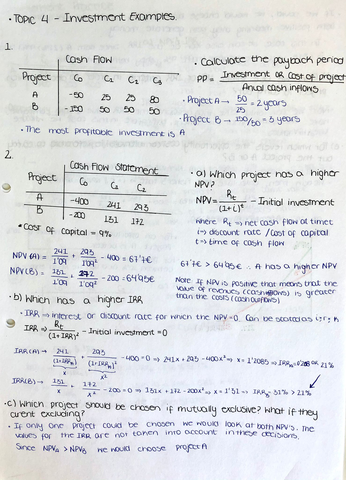 • TOPIC 4 - Investment Examples.
1.
Cash Flow
Project C₀ C₁ C₂ C₃
A -50 25 25 80
B -150 50 50 50
• The most profitable investment is A
• Calculate the payback period
PP = Investment or Cost of project / Anual cash inflows
• Project A → 50/25 = 2 years
• Project B → 150/50 = 3 years
2.
Cash Flow Statement
Project C₀ C₁ C₂
A -400 241 293
B -200 131 172
*Cost of capital = 9%
• a) Which project has a higher
NPV?
NPV = Rt / (1+i)ᵗ - Initial investment
where Rt → net cash flow at time t
i → discount rate / cost of capital
t → time of cash flow
NPV(A) = 241/1'09 + 293/1'09² - 400 = 67'7€
NPV(B) = 131/1'09 + 172/1'09² - 200 = 64'95€
67'7€ > 64'95€ ∴ A has a higher NPV
Note: If NPV is positive that means that the
value of revenues (cash inflows) is greater
than the costs (cash outflows)
• b) Which has a higher IRR
• IRR → interest or discount rate for which the NPV=0. Can be stated as i, r, k
IRR ⇒ Rt / (1+IRR)ᵗ - Initial investment = 0
IRR(A) → 241/x + 293/x² - 400 = 0 → 241x + 293 - 400x² → x = 1'2085 → IRR
21%
IRR(B) → 131/x + 172/x² - 200 = 0 → 131x + 172 - 200x² → x = 1'31 → IRR 31% > 21%
• c) Which project should be chosen if mutually exclusive? What if they
arent excluding?
• If only one project could be chosen we would look at both NPV's. The
values for the IRR are not taken into account in these decisions.
Since NPVA > NPVB we would choose project A